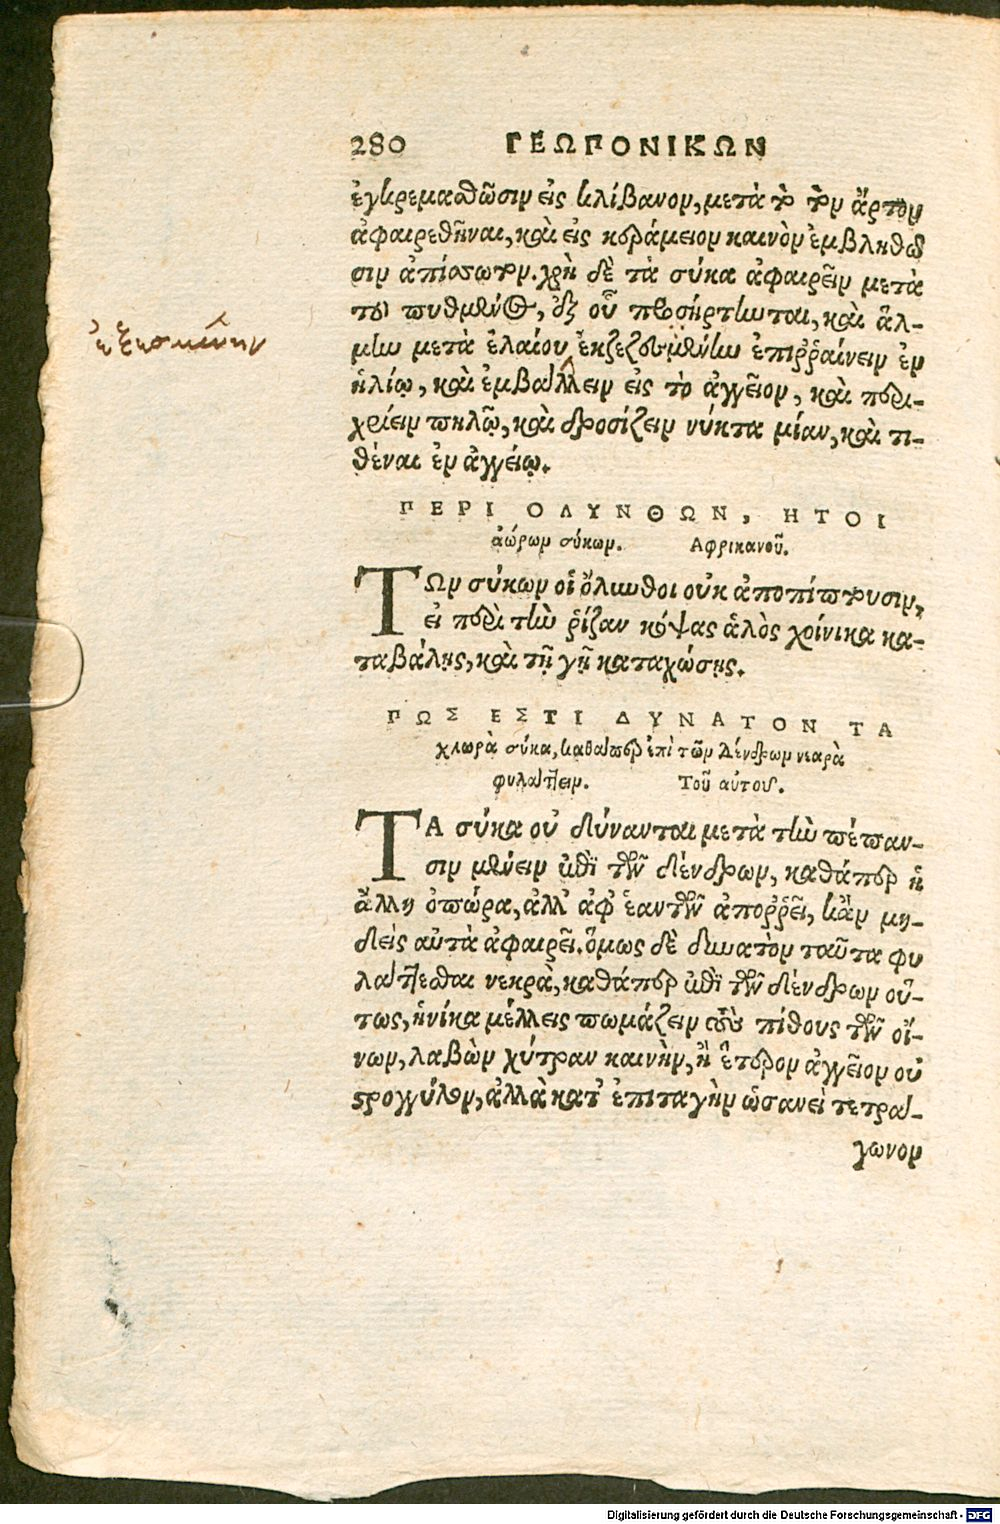 280 ΓΕΩΠΟΝΙΚΩΝ
ἐγκρεμασθῶσιν εἰς κλίβανον, μετὰ τὸ τὸν ἄρτον
ἀφαιρεθῆναι, καὶ εἰς κεράμειον καινὸν ἐμβληθῶ
σιν ἀπίσσωτον. χρὴ δὲ τὰ σύκα ἀφαιρεῖν μετὰ
τοῦ πυθμένος, ἐξ οὗ προσήρτηνται, καὶ ἅλ-
μην μετὰ ἐλαίου ἐκζεζεσμένην ἐπιῤῥαίνειν ἐν
ἐξεσμένην
ἡλίῳ, καὶ ἐμβάλλειν εἰς τὸ ἀγγεῖον, καὶ περι-
χρίειν πηλῷ, καὶ δροσίζειν νύκτα μίαν, καὶ τι-
θέναι ἐν ἀγγείῳ.
ΠΕΡΙ ΟΛΥΝΘΩΝ, ΗΤΟΙ
ἀώρων σύκων. Αφρικανοῦ.
ΤΩν σύκων οἱ ὄλυνθοι οὐκ ἀποπίπτουσιν,
εἰ περὶ τὴν ῥίζαν κόψας ἁλὸς χοίνικα κα-
ταβάλῃς, καὶ τῇ γῇ καταχώσῃς.
ΠΩΣ ΕΣΤΙ ΔΥΝΑΤΟΝ ΤΑ
χλωρὰ σύκα, καθάπερ ἐπὶ τῶν δένδρων νεαρὰ
φυλάττειν. Τοῦ αὐτοῦ.
ΤΑ σύκα οὐ δύνανται μετὰ τὴν πέπαν-
σιν μένειν ἐπὶ τῶν δένδρων, καθάπερ ἡ
ἄλλη ὀπώρα, ἀλλ' ἀφ' ἑαυτῶν ἀποῤῥεῖ, κἂν μη-
δεὶς αὐτὰ ἀφαιρεῖ. ὅμως δὲ δυνατὸν ταῦτα φυ
λάττεσθαι νεκρὰ, καθάπερ ἐπὶ τῶν δένδρων οὕ-
τως, ἡνίκα μέλλεις πωμάζειν τοὺς πίθους τῶν οἴ-
νων, λαβὼν χύτραν καινὴν, ἢ ἕτερον ἀγγεῖον οὐ
στρογγύλον, ἀλλὰ κατ' ἐπιταγὴν ὡσανεὶ τετρα-
γωνον
Digitalisierung gefördert durch die Deutsche Forschungsgemeinschaft - DFG